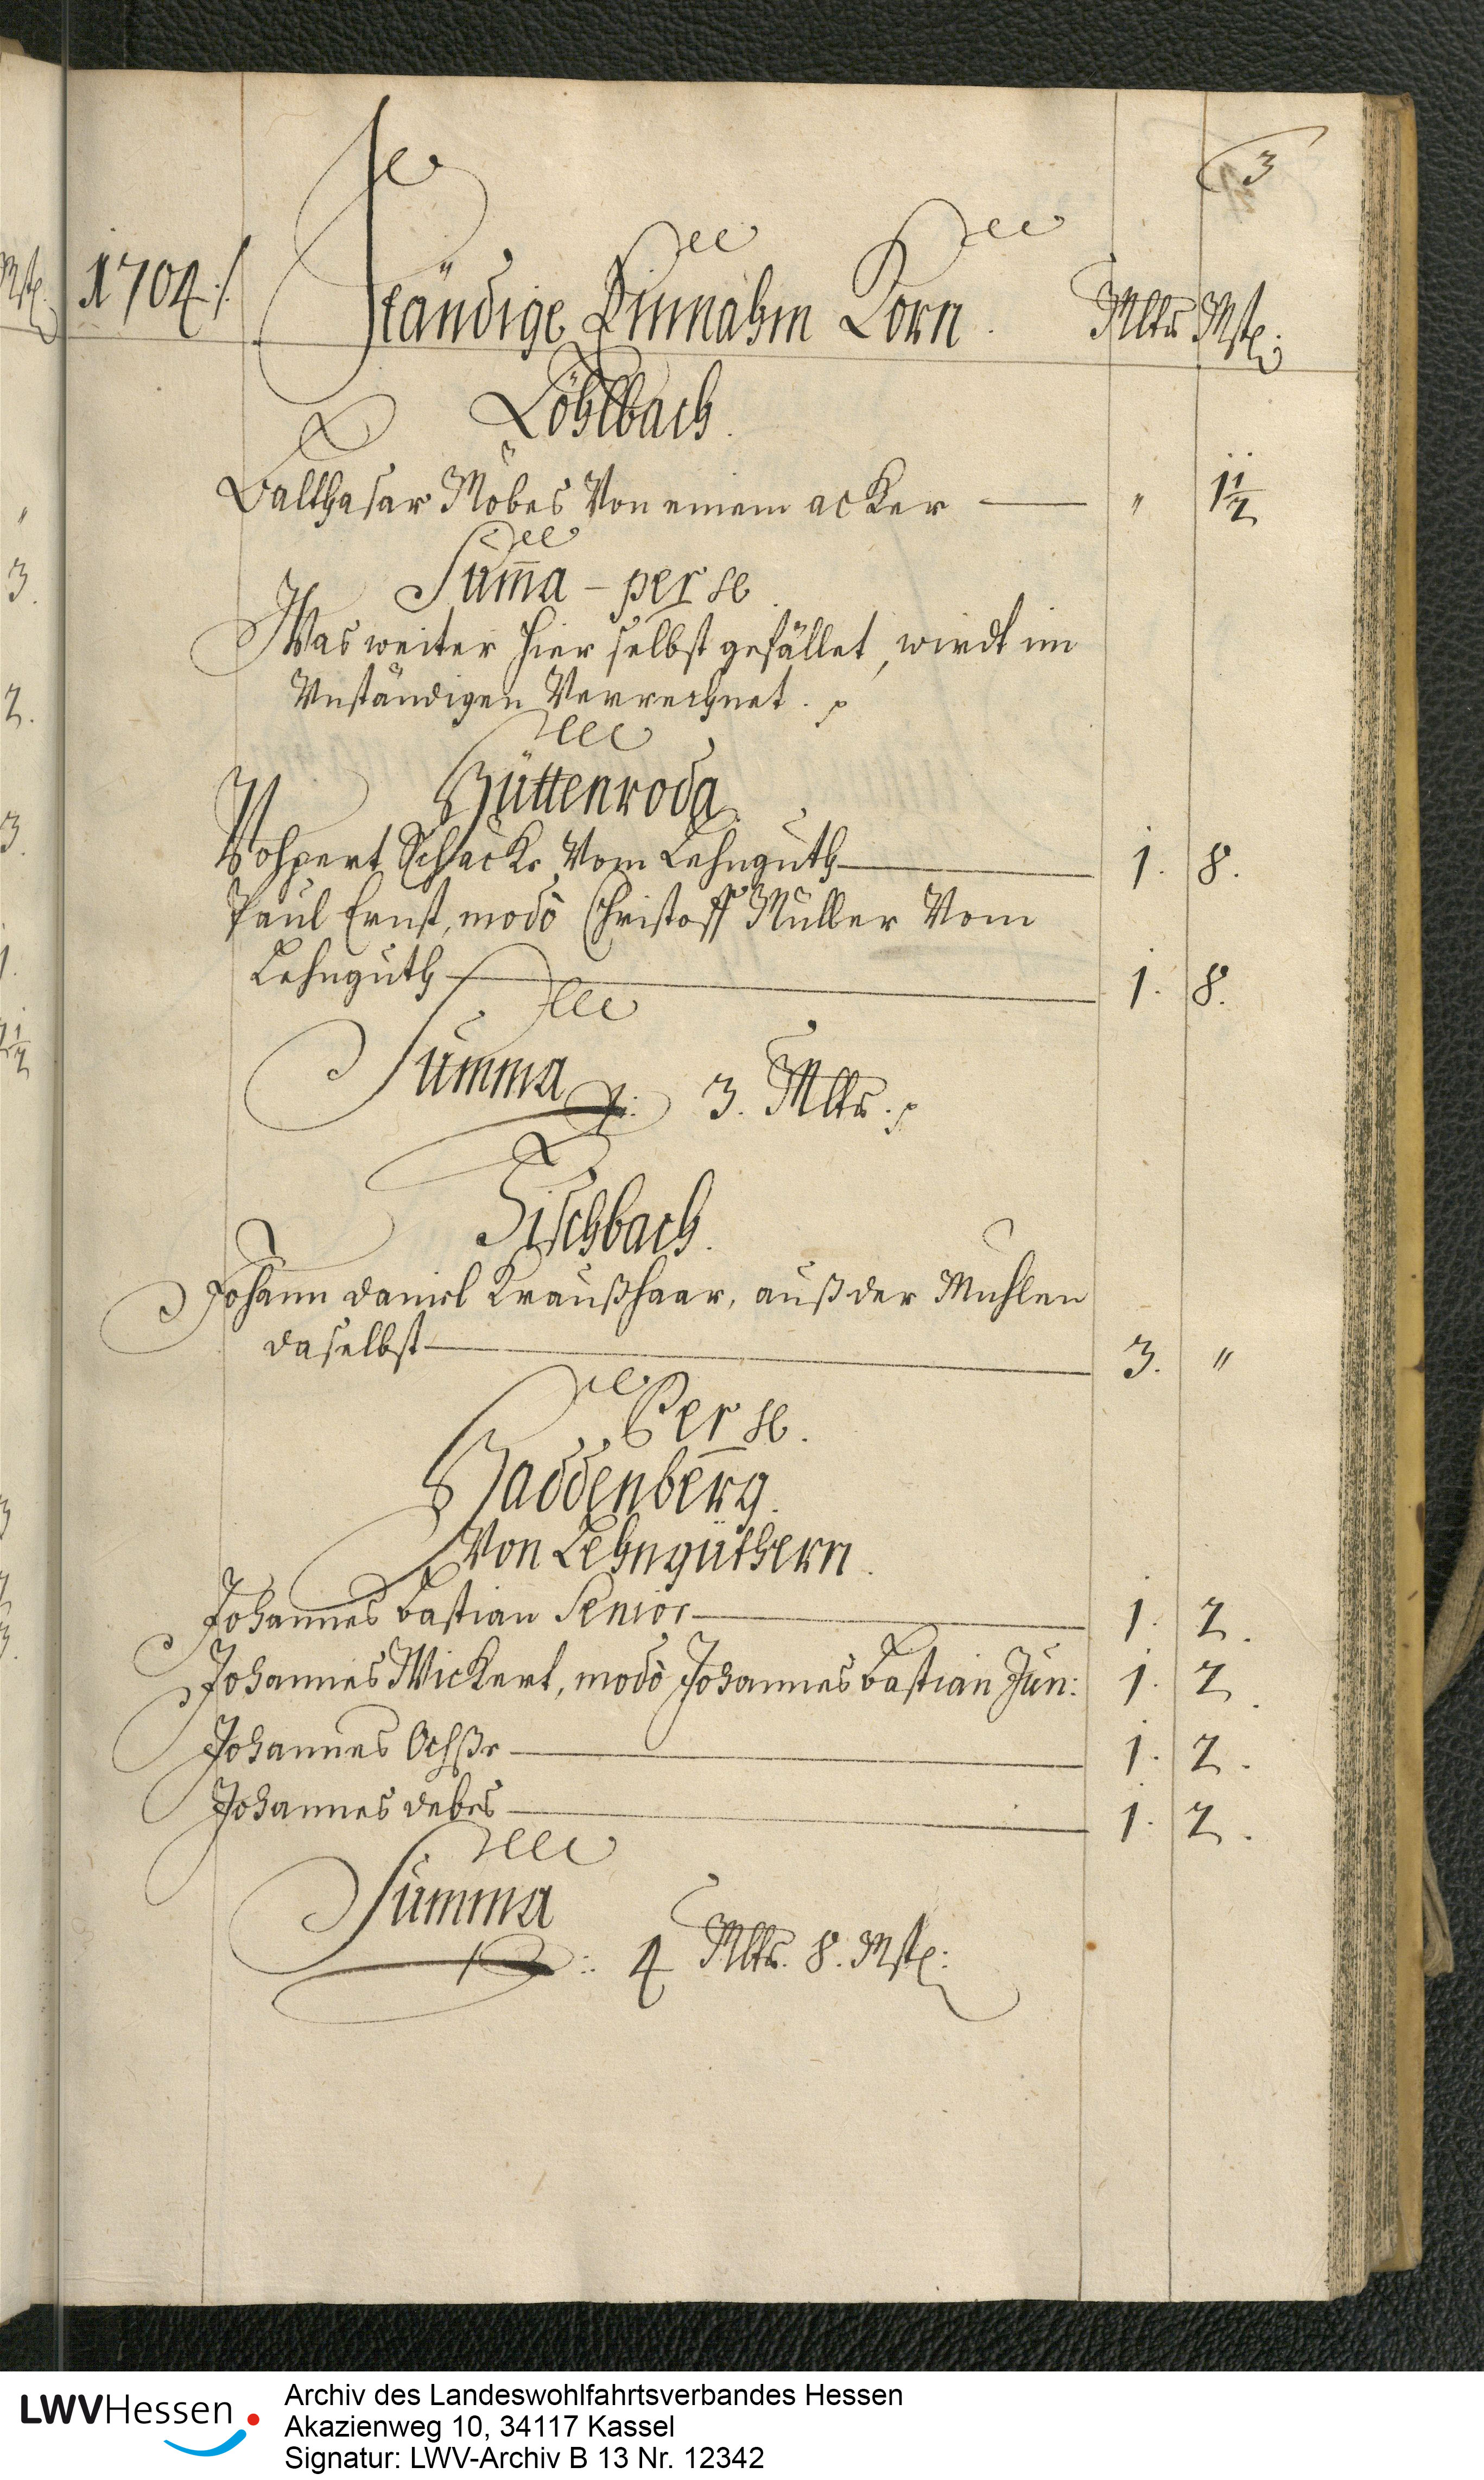 3
1704./. Ständige Einnahm Korn. Mltr Mst:
Löhlbach.
Balthasar Möbes Von einem acker — " 1½
Sum̅a - per se.
Was weiter hier selbst gefället, wirdt im
Unständigen Verrechnet.
Hüttenroda.
Vohpert Schäck Vom Lehnguth — 1. 8.
Paul Ernst, modò Christoff Müller Vom
Lehnguth — 1. 8.
Summa
3. Mltr.
Fischbach.
Johann Daniel Kraußhaar, auß der Muhlen
daselbst — 3. "
Per se.
Haddenberg.
Von Lehngüthern.
Johannes Bastian Senior — 1. 2.
Johannes Wickert, modò Johannes Bastian Jun: 1. 2.
Johannes Ochße — 1. 2.
Johannes Debes — 1. 2.
Summa
4 Mltr. 8. Mst:
LWVHessen
Archiv des Landeswohlfahrtsverbandes Hessen
Akazienweg 10, 34117 Kassel
Signatur: LWV-Archiv B 13 Nr. 12342